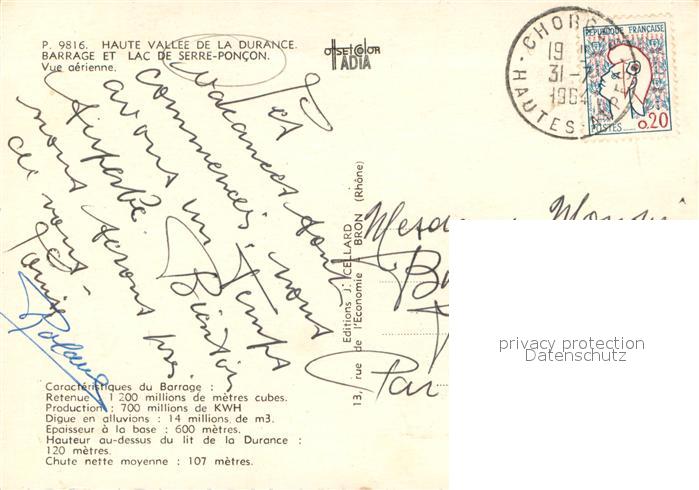 P. 9816. HAUTE VALLEE DE LA DURANCE.
BARRAGE ET LAC DE SERRE-PONÇON.
Vue aérienne.
OFFSETCOLOR
IADIA
CHORGES
19
31-7
1964
HAUTES-ALPES
REPUBLIQUE FRANÇAISE
POSTES
0,20
Les
vacances sont
commencées nous
avons un temps
superbe. Bientôt
nous serons près
de vous.
Louise
Roland
Editions J. CELLARD
13, rue de l'Economie BRON (Rhône)
Par
privacy protection
Datenschutz
Caractéristiques du Barrage :
Retenue : 1 200 millions de mètres cubes.
Production : 700 millions de KWH
Digue en alluvions : 14 millions de m3.
Epaisseur à la base : 600 mètres.
Hauteur au-dessus du lit de la Durance :
120 mètres.
Chute nette moyenne : 107 mètres.